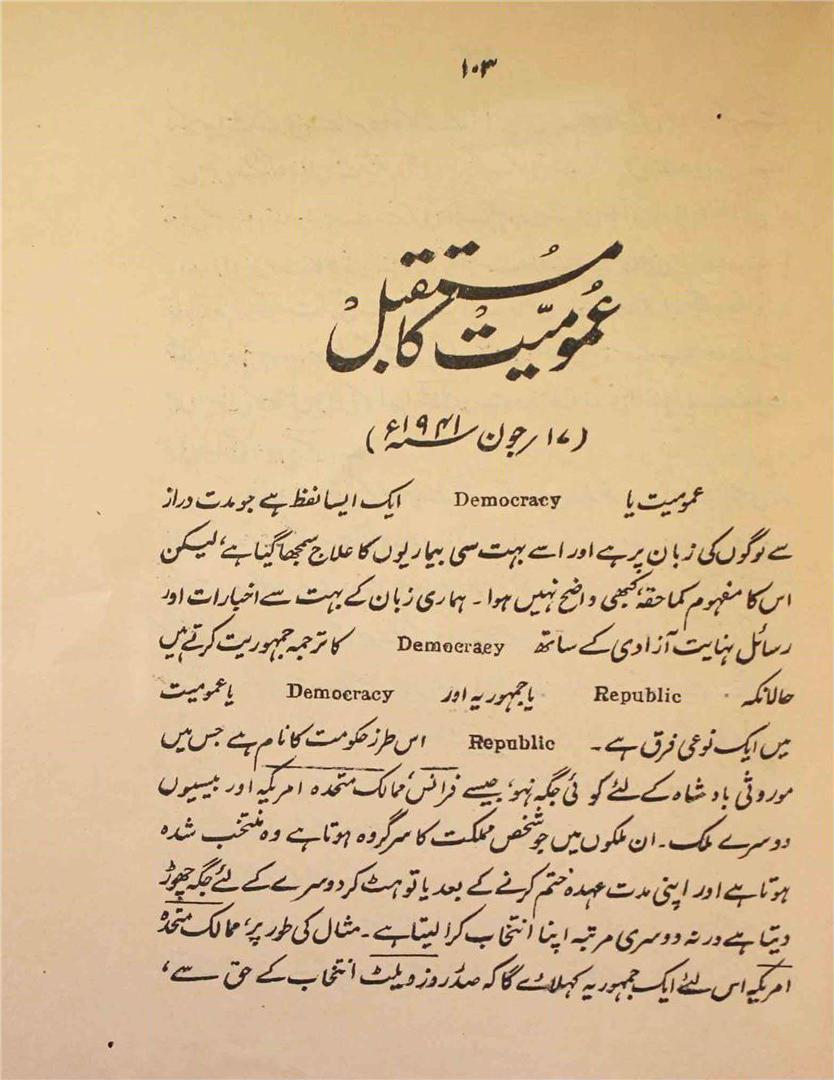 ۱۰۳
عُمُومیّت کا مُستقبل
(۱۷ر جون سنہ ۱۹۴۱ء)
عمومیت یا Democracy ایک ایسا لفظ ہے جو مدت دراز
سے لوگوں کی زبان پر ہے اور اسے بہت سی بیماریوں کا علاج سمجھا گیا ہے، لیکن
اس کا مفہوم کماحقہٗ کبھی واضح نہیں ہوا۔ ہماری زبان کے بہت سے اخبارات اور
رسائل نہایت آزادی کے ساتھ Democracy کا ترجمہ جمہوریت کرتے ہیں
حالانکہ Republic یا جمہوریہ اور Democracy یا عمومیت
میں ایک نوعی فرق ہے۔ Republic اس طرز حکومت کا نام ہے جس میں
موروثی بادشاہ کے لئے کوئی جگہ نہو، جیسے فرانس، ممالک متحدہ امریکہ اور بیسیوں
دوسرے ملک۔ ان ملکوں میں جو شخص مملکت کا سرگروہ ہوتا ہے وہ منتخب شدہ
ہوتا ہے اور اپنی مدت عہدہ ختم کرنے کے بعد یا تو ہٹ کر دوسرے کے لئے جگہ چھوڑ
دیتا ہے ورنہ دوسری مرتبہ اپنا انتخاب کرا لیتا ہے۔ مثال کی طور پر، ممالک متحدہ
امریکہ اس لئے ایک جمہوریہ کہلائے گا کہ صدر روزویلٹ انتخاب کے حق سے،